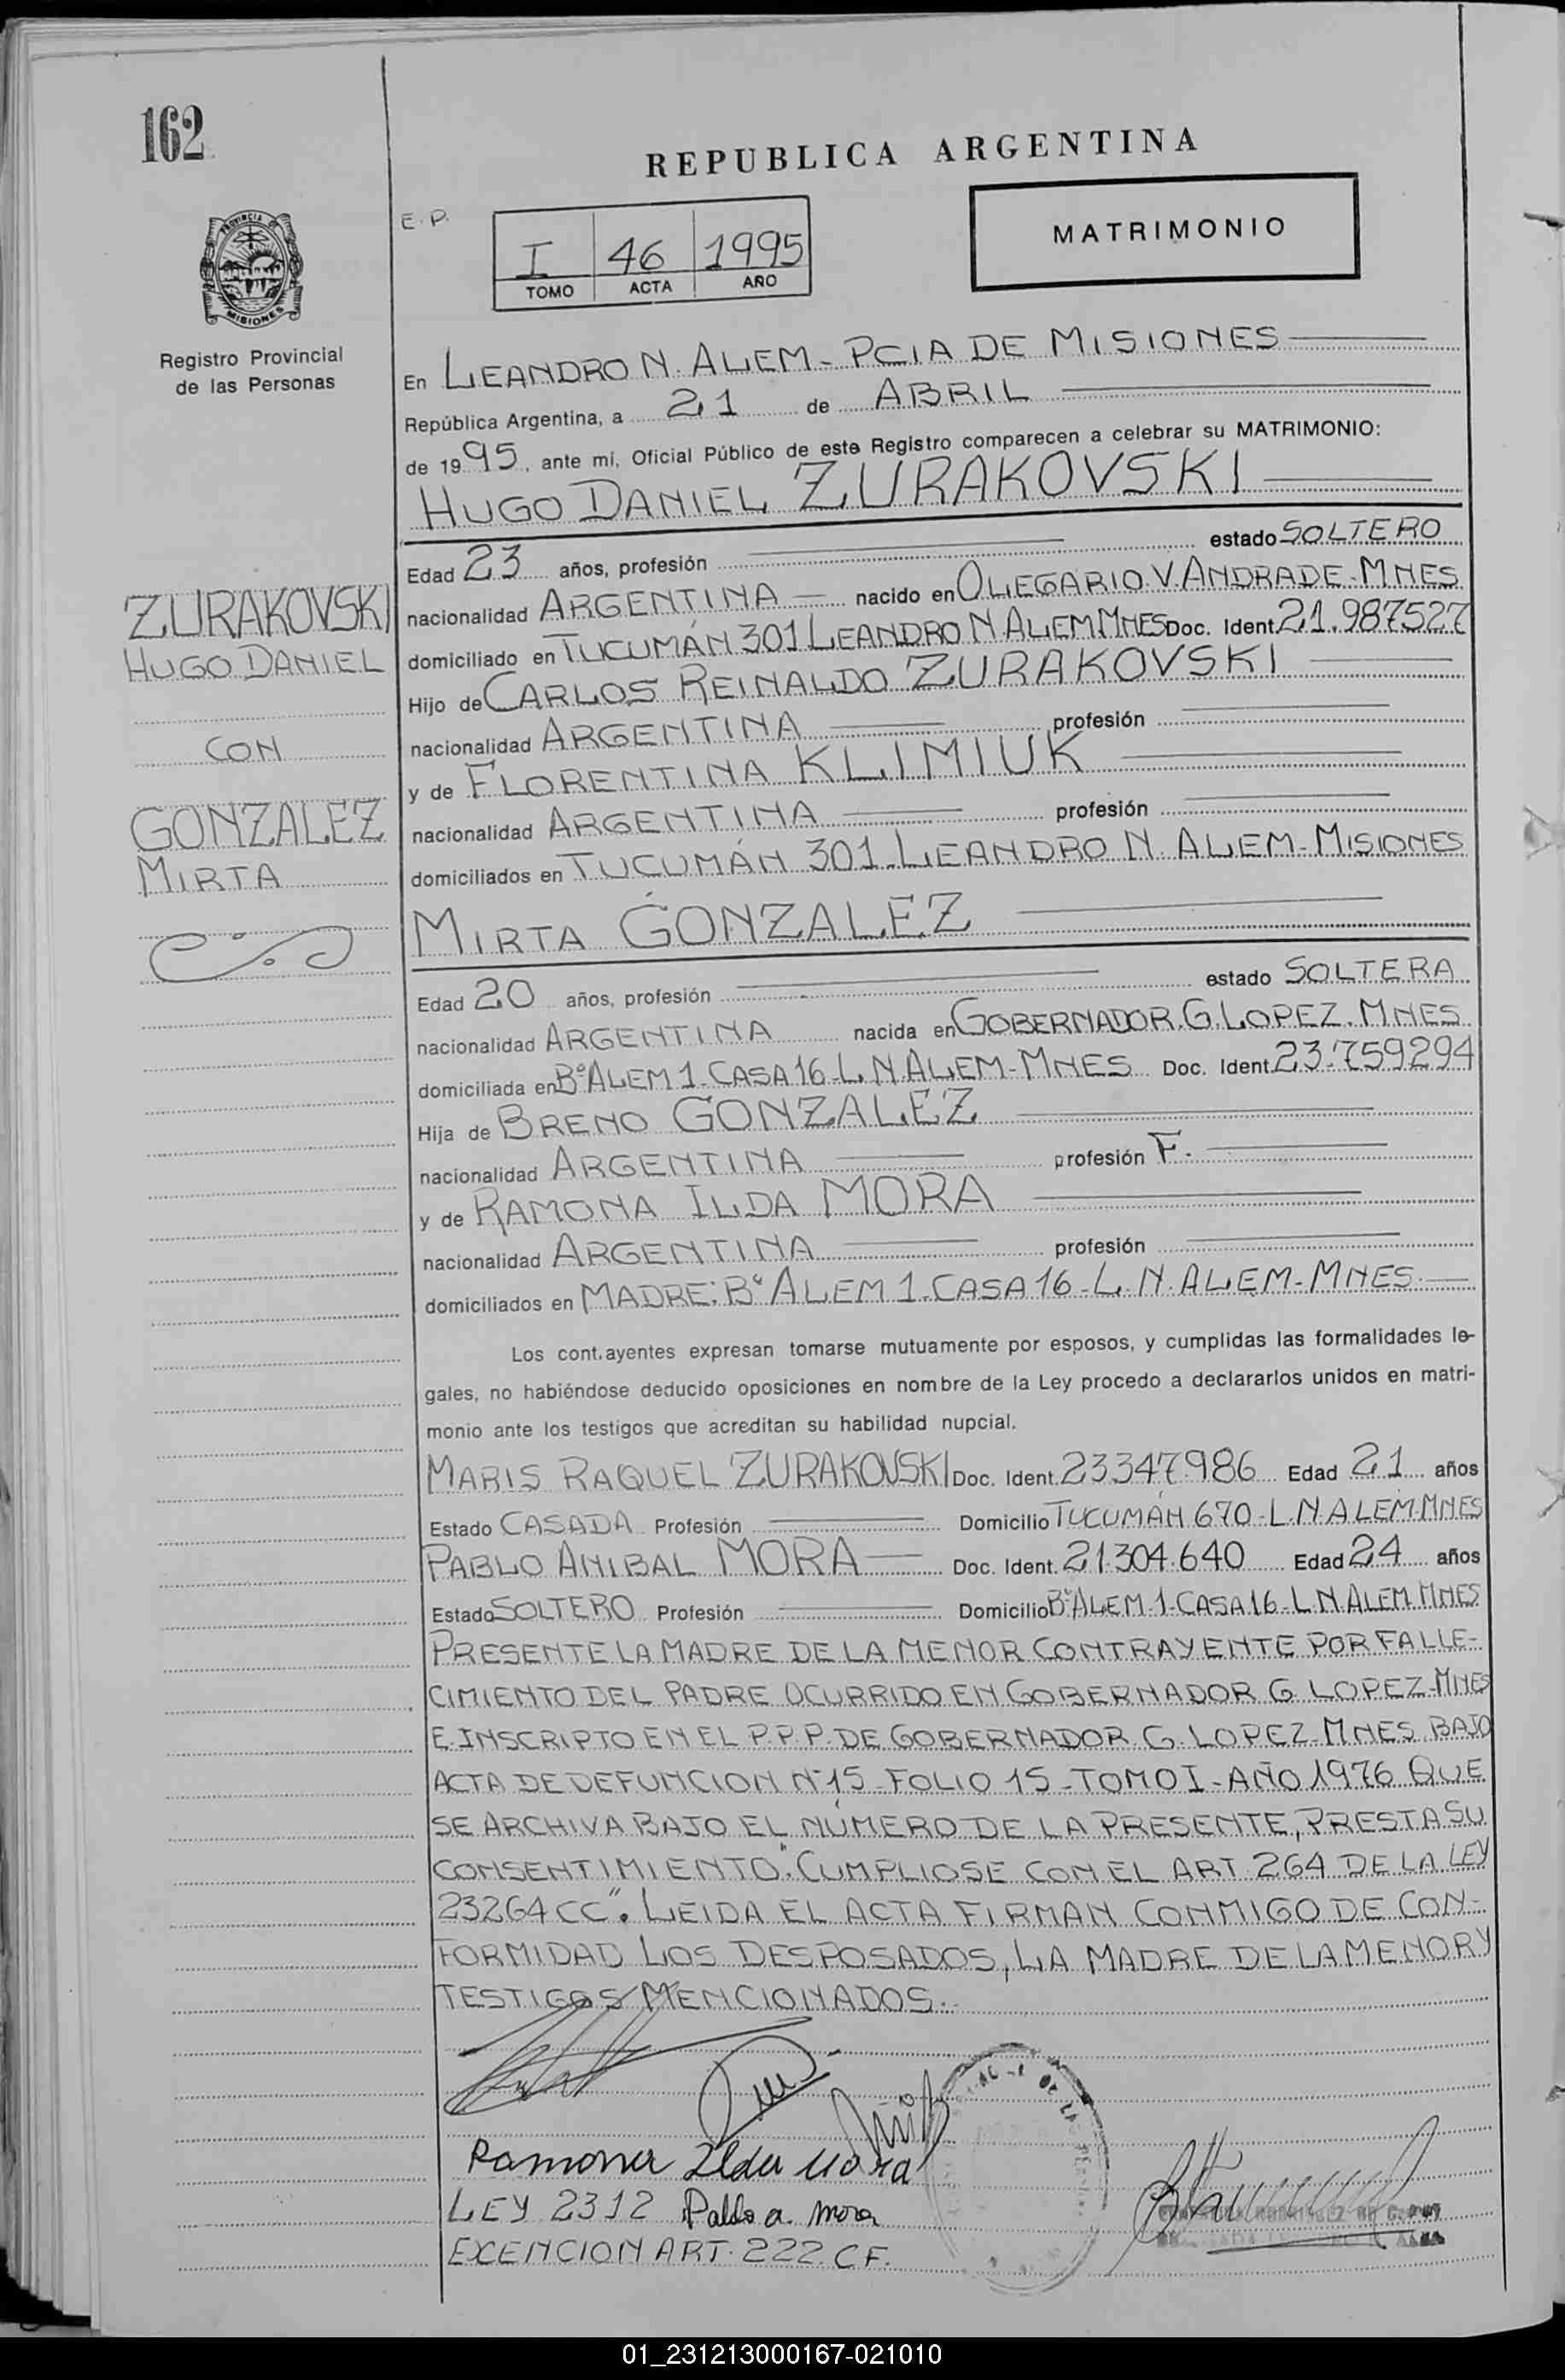 162
REPUBLICA ARGENTINA
PROVINCIA DE
MISIONES
Registro Provincial
de las Personas
E. P.
I 46 1995
TOMO ACTA AÑO
MATRIMONIO
En LEANDRO N. ALEM - PCIA DE MISIONES
República Argentina, a 21 de ABRIL
de 1995, ante mí, Oficial Público de este Registro comparecen a celebrar su MATRIMONIO:
HUGO DANIEL ZURAKOVSKI
Edad 23 años, profesión estado SOLTERO
nacionalidad ARGENTINA nacido en OLEGARIO V. ANDRADE - MNES
domiciliado en TUCUMÁN 301 LEANDRO N ALEM. MNES Doc. Ident. 21.987527
Hijo de CARLOS REINALDO ZURAKOVSKI
nacionalidad ARGENTINA profesión
y de FLORENTINA KLIMIUK
nacionalidad ARGENTINA profesión
domiciliados en TUCUMÁN 301 - LEANDRO N. ALEM - MISIONES
ZURAKOVSKI
HUGO DANIEL
CON
GONZALEZ
MIRTA
MIRTA GONZALEZ
Edad 20 años, profesión estado SOLTERA
nacionalidad ARGENTINA nacida en GOBERNADOR. G. LOPEZ. MNES
domiciliada en Bº ALEM 1 - CASA 16 - L. N. ALEM - MNES Doc. Ident. 23.759294
Hija de BRENO GONZALEZ
nacionalidad ARGENTINA profesión F.
y de RAMONA ILDA MORA
nacionalidad ARGENTINA profesión
domiciliados en MADRE: Bº ALEM 1 - CASA 16 - L. N. ALEM - MNES
Los cont.ayentes expresan tomarse mutuamente por esposos, y cumplidas las formalidades le-
gales, no habiéndose deducido oposiciones en nombre de la Ley procedo a declararlos unidos en matri-
monio ante los testigos que acreditan su habilidad nupcial.
MARIS RAQUEL ZURAKOVSKI Doc. Ident. 23347986 Edad 21 años
Estado CASADA Profesión Domicilio TUCUMÁN 670 - L. N. ALEM. MNES
PABLO ANIBAL MORA Doc. Ident. 21.304.640 Edad 24 años
Estado SOLTERO Profesión Domicilio Bº ALEM - 1 - CASA 16 - L. N. ALEM. MNES
PRESENTE LA MADRE DE LA MENOR CONTRAYENTE POR FALLE-
CIMIENTO DEL PADRE OCURRIDO EN GOBERNADOR G. LOPEZ - MNES
E. INSCRIPTO EN EL P.P.P. DE GOBERNADOR G. LOPEZ - MNES. BAJO
ACTA DE DEFUNCION Nº 15 - FOLIO 15 - TOMO I - AÑO 1976 QUE
SE ARCHIVA BAJO EL NÚMERO DE LA PRESENTE, PRESTA SU
CONSENTIMIENTO. "CUMPLIOSE CON EL ART. 264 DE LA LEY
23264 CC". LEIDA EL ACTA FIRMAN CONMIGO DE CON-
FORMIDAD LOS DESPOSADOS, LA MADRE DE LA MENOR Y
TESTIGOS MENCIONADOS.
Ramona Ilda Mora
LEY 2312 Pablo a. mora
EXENCION ART. 222. C F.
01_231213000167-021010